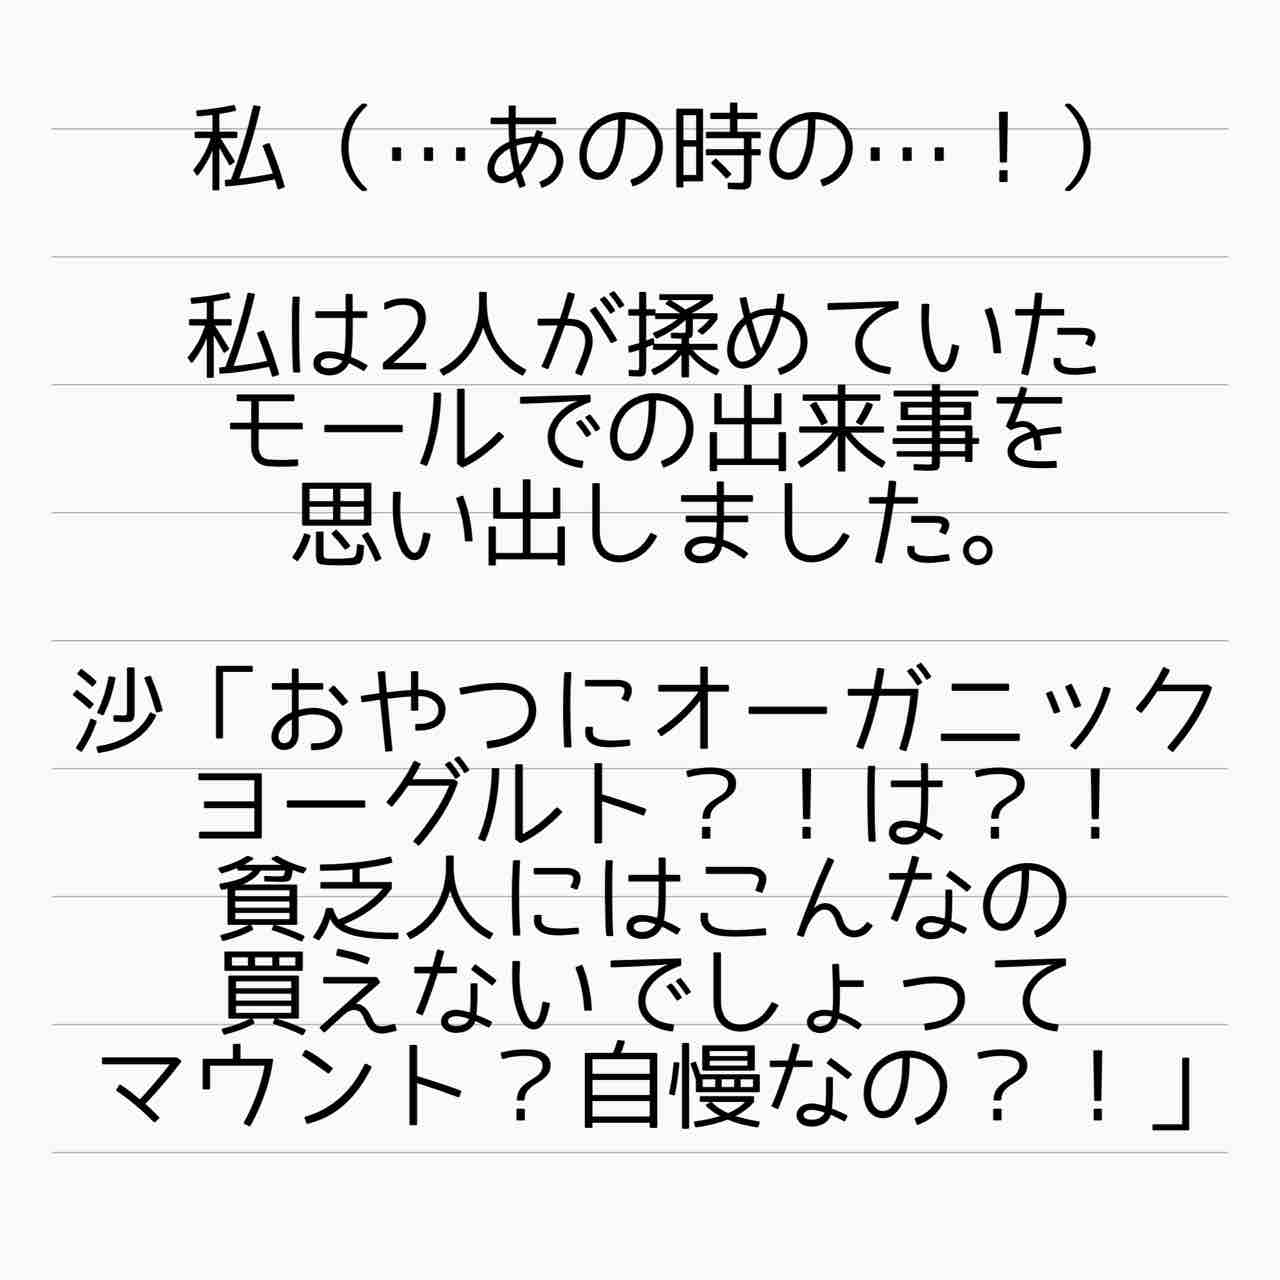 私（…あの時の…！）
私は2人が揉めていた
モールでの出来事を
思い出しました。
沙「おやつにオーガニック
ヨーグルト？！は？！
貧乏人にはこんなの
買えないでしょって
マウント？自慢なの？！」